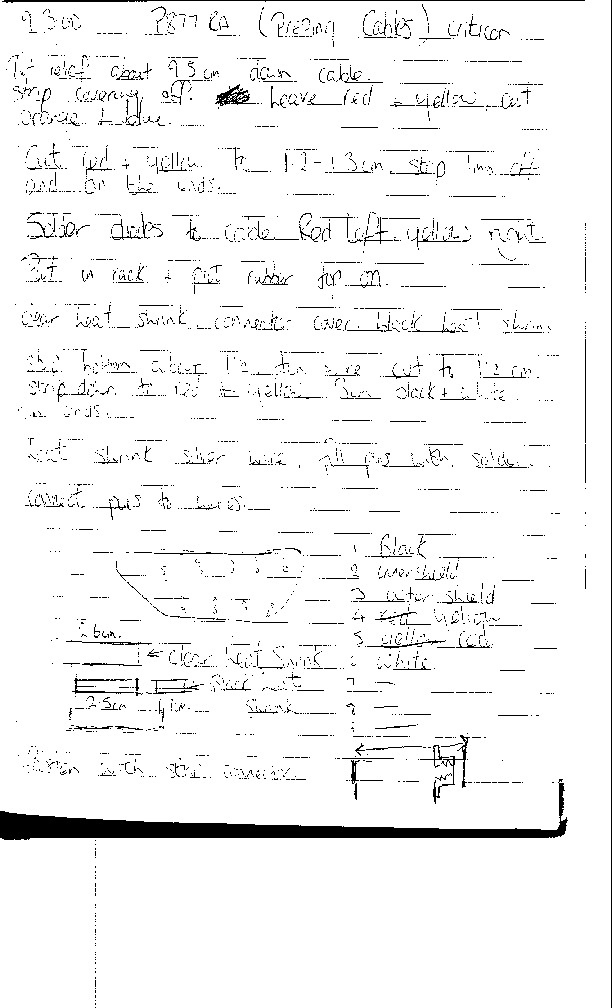 9300 P877 RA (Prezing Cables) criticon
relief about 9.5cm down cable.
strip covering off. Leave red + yellow, cut
orange + blue.
Cut red + yellow to 1.2-1.3cm, strip 1mm off
and tin the ends.
Solder diodes to cable Red left yellow right
Put in rack + put rubber for on.
clear heat shrink, connector cover, black heat shrink
strip bottom about 12 down wire cut to 12cm.
strip down to red + yellow 3mm black + white
ends.
Heat shrink silver wire, fill pins with solder
connect pins to wires.
1 Black
2 innershield
3 outer shield
4 yellow
5 red
6 white
7 —
8 —
9 —
6cm.
← clear heat Shrink
← Black heat
Shrink
2.5cm 1cm
with strip connector